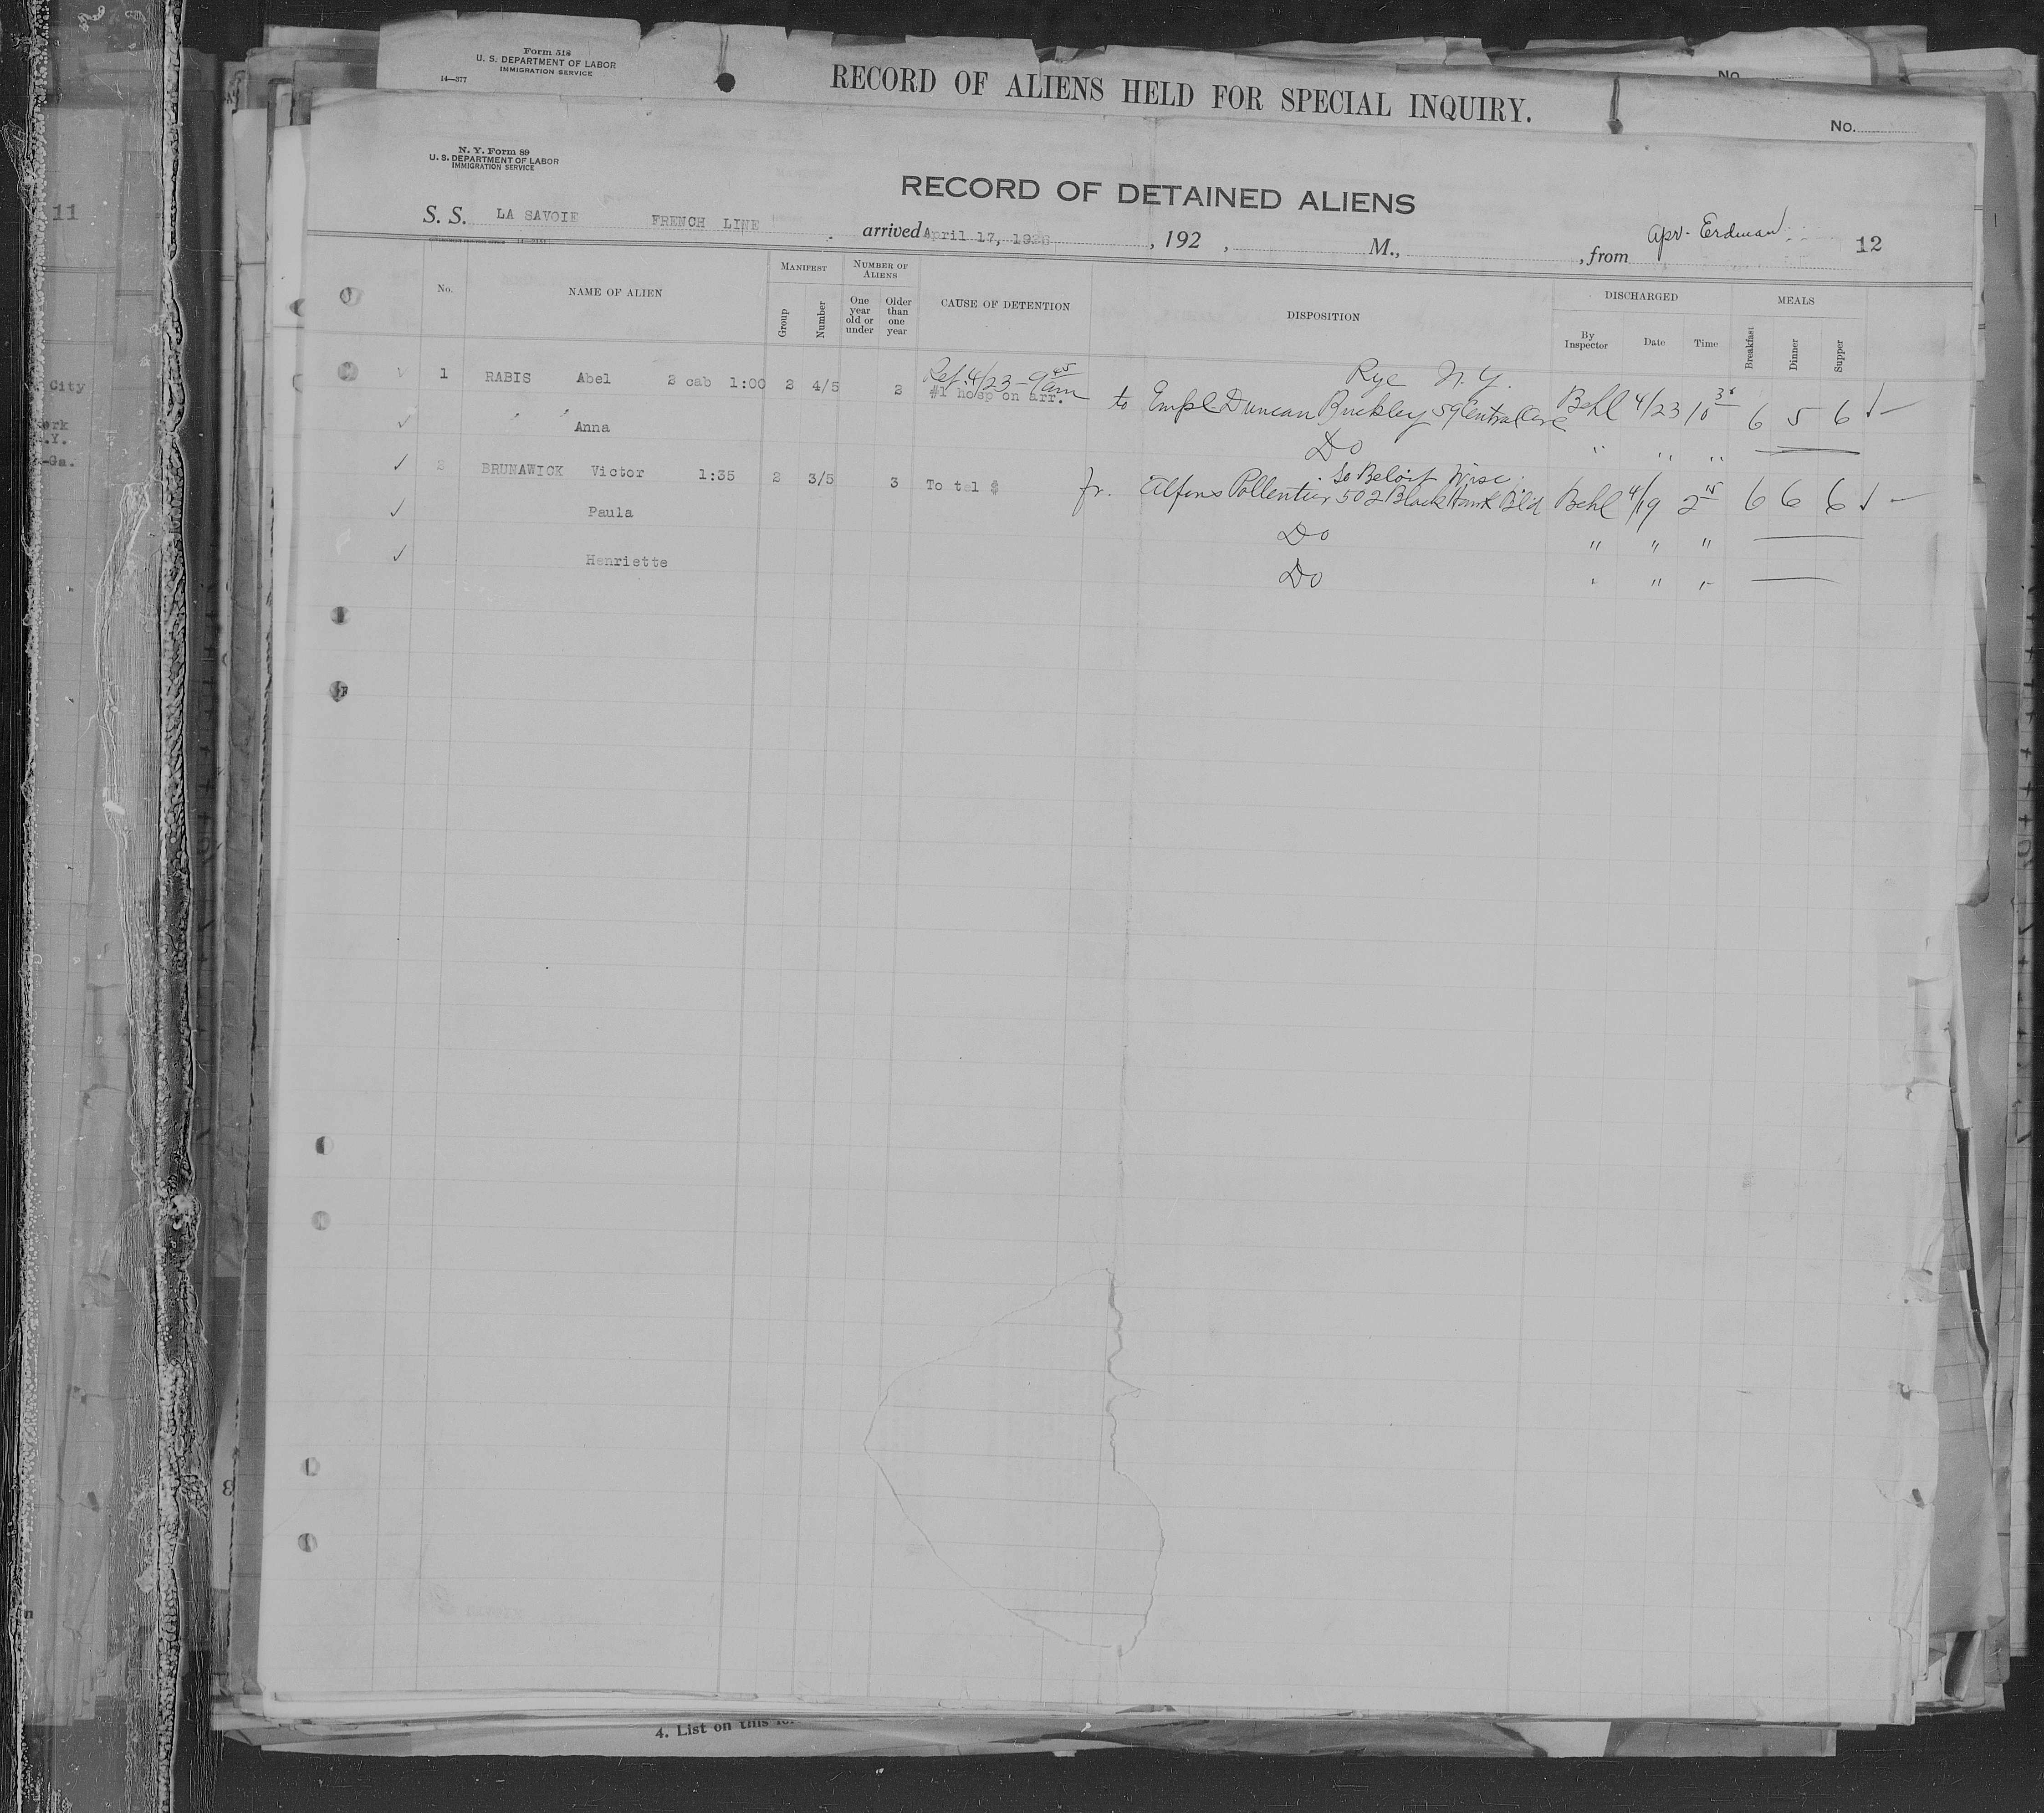 Form 518
U. S. DEPARTMENT OF LABOR
IMMIGRATION SERVICE
14—377
RECORD OF ALIENS HELD FOR SPECIAL INQUIRY.
No.
No.
N. Y. Form 89
U. S. DEPARTMENT OF LABOR
IMMIGRATION SERVICE
RECORD OF DETAINED ALIENS
S. S. LA SAVOIE FRENCH LINE arrived April 17, 1926, 192 , M., , from Apr. Erdman 12
No. NAME OF ALIEN MANIFEST Group Number NUMBER OF ALIENS One year old or under Older than one year CAUSE OF DETENTION DISPOSITION DISCHARGED By Inspector Date Time MEALS Breakfast Dinner Supper
Ref. 4/23 – 9 45 am Rye N. Y.
1 RABIS Abel 2 cab 1:00 2 4/5 2 #1 hosp on arr. to Empl. Duncan Buckley 59 Central Ave Behl 4/23 10 6 5 6
" " Anna Do " " "
So Beloit Wisc.
2 BRUNAWICK Victor 1:35 2 3/5 3 To tel $ fr. Alfons Pollentier 502 Black Hawk Bld Behl 4/19 2 15 6 6 6
Paula Do " " "
Henriette Do " " "
11
City
ork
.Y.
-Ga.
4. List on this